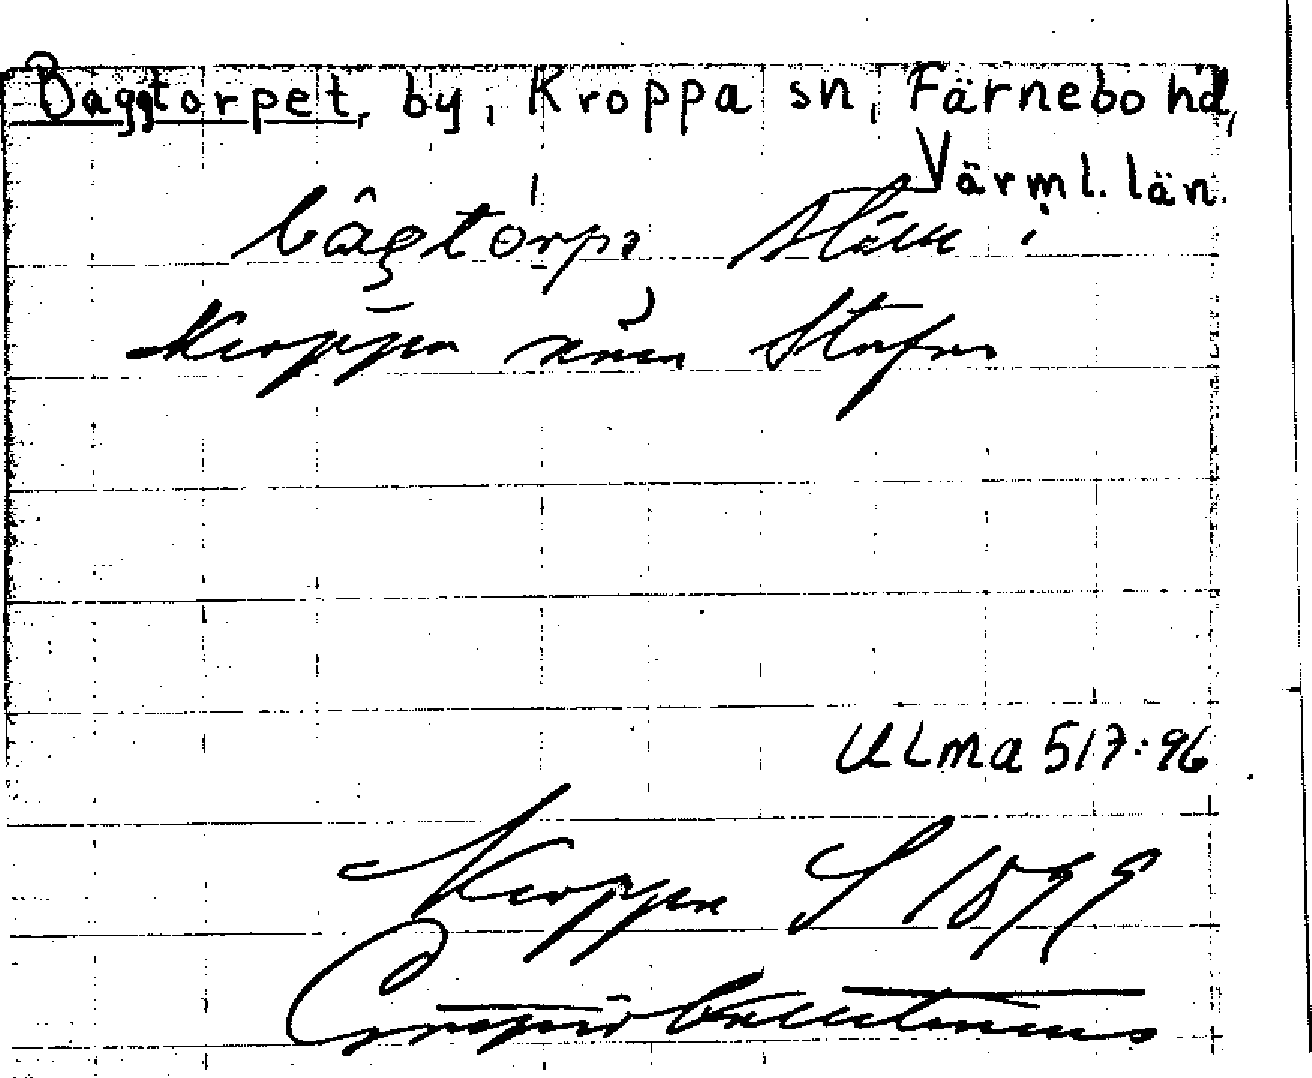 Baggtorpet, by, Kroppa sn, Färnebo hd,
Värml. län.
bågtorpə ställe i
Kroppa nära Storfors
ULMA 517:96
Kroppa S 1899